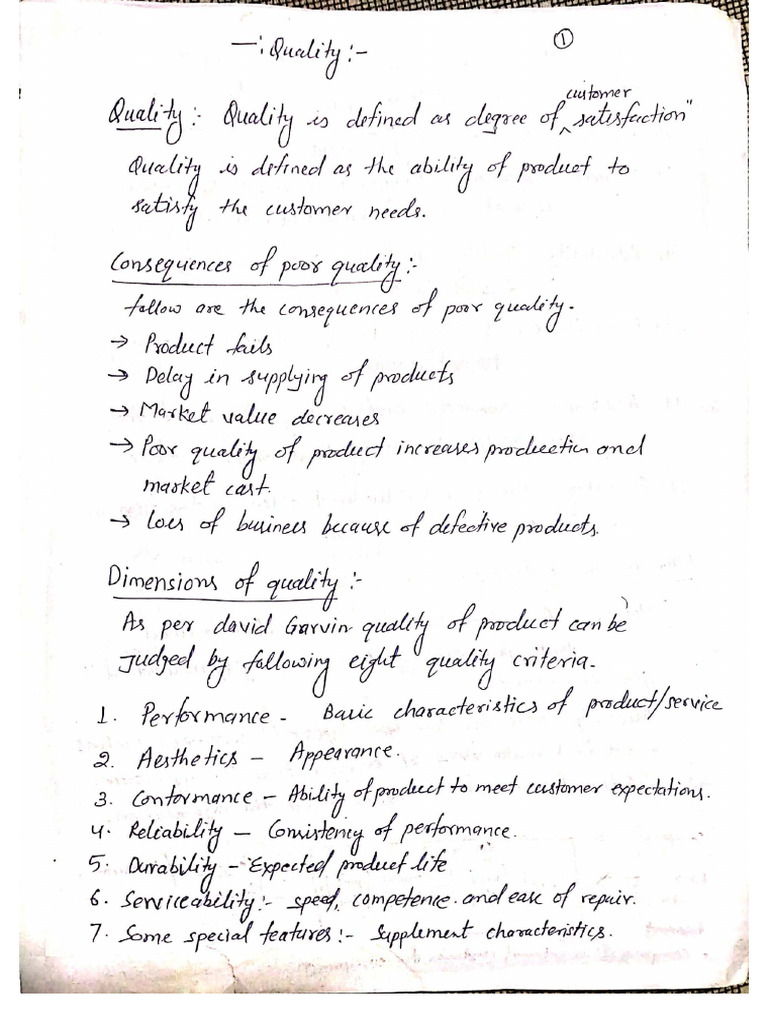 —: Quality :-
①
Quality :- Quality is defined as degree of ^customer satisfaction"
Quality is defined as the ability of product to
satisfy the customer needs.
Consequences of poor quality :-
follow are the consequences of poor quality.
→ Product fails
→ Delay in supplying of products
→ Market value decreases
→ Poor quality of product increases production and
market cost.
→ Loss of business because of defective products.
Dimensions of quality :-
As per david Garvin quality of product can be
Judged by following eight quality criteria.
1. Performance - Basic characteristics of product/service
2. Aesthetics - Appearance.
3. Conformance - Ability of product to meet customer expectations.
4. Reliability - Consistency of performance.
5. Durability - Expected product life
6. Serviceability :- speed, competence and ease of repair.
7. Some special features :- Supplement characteristics.